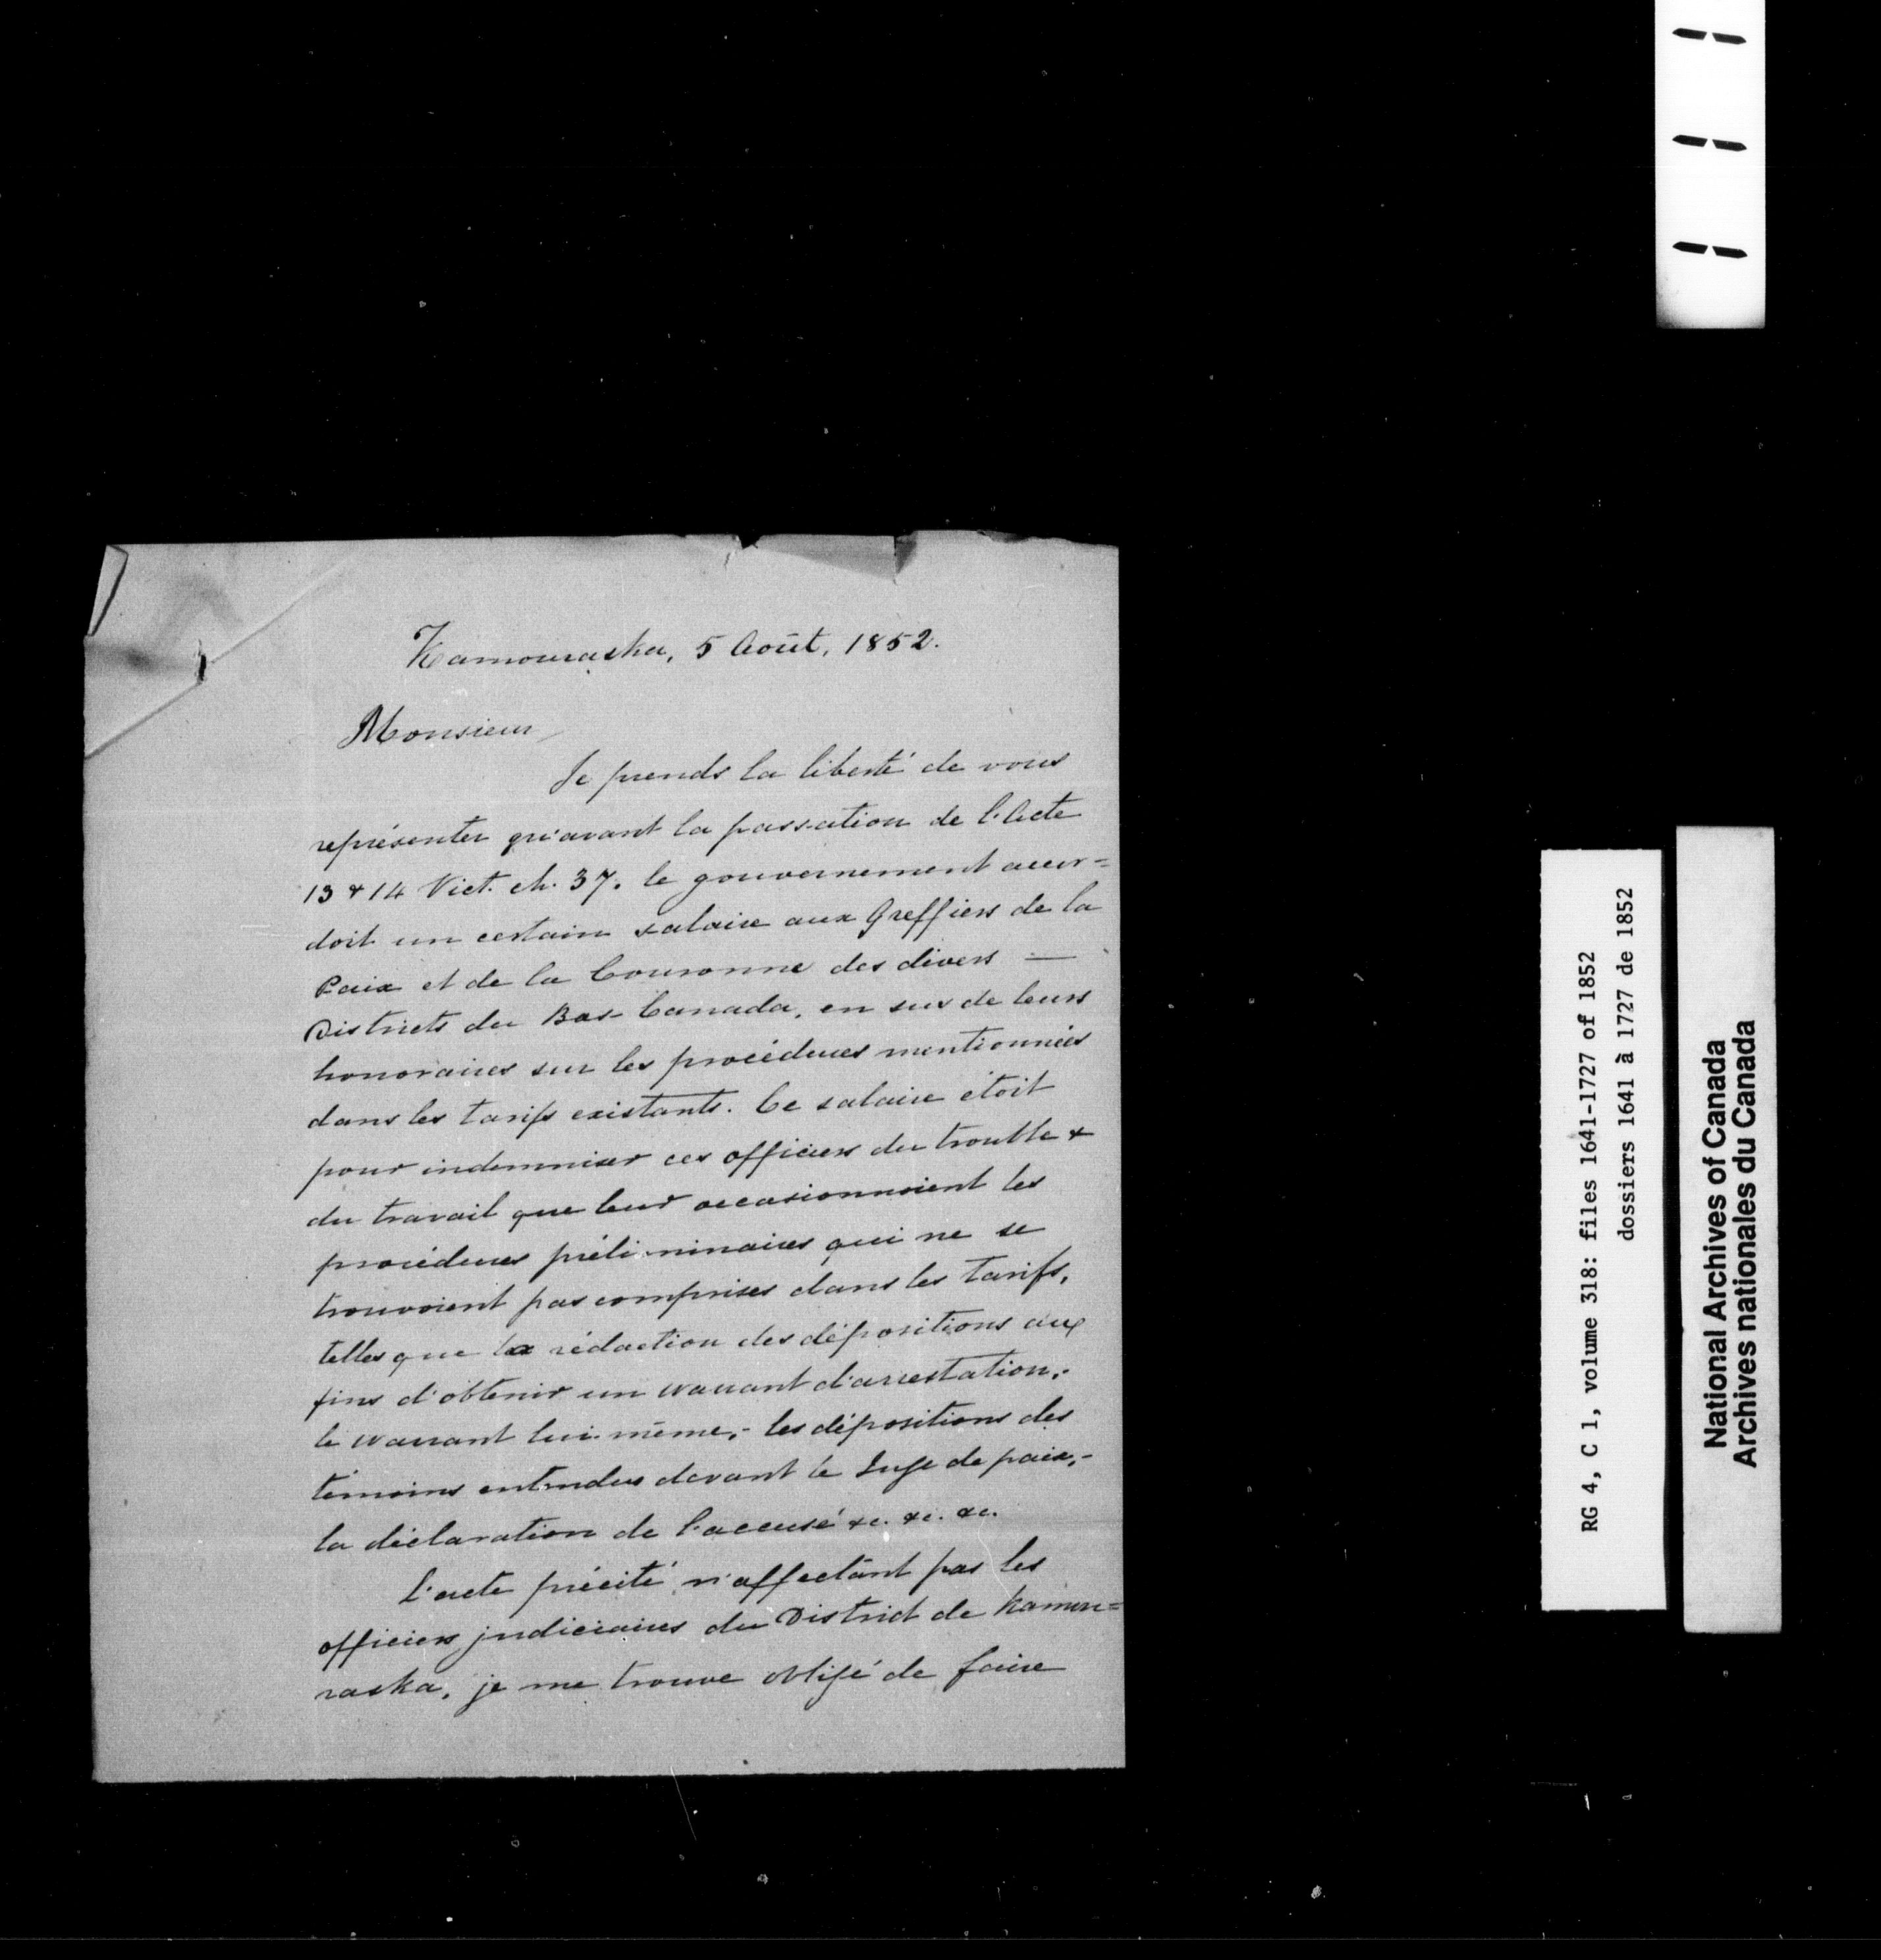 Kamouraska, 5 Août, 1852.
Monsieur,
Je prends la liberté de vous
représenter qu'avant la passation de l'Acte
13 & 14 Vict. ch. 37. le gouvernement accor=
doit un certain salaire aux Greffiers de la
Paix et de la Couronne des divers —
Districts du Bas-Canada, en sus de leurs
honoraires sur les procédures mentionnées
dans les tarifs existants. Ce salaire étoit
pour indemniser ces officiers du trouble &
du travail que leur occasionnoient les
procédures préliminaires qui ne se
trouvoient pas comprises dans les tarifs,
telles que la rédaction des dépositions aux
fins d'obtenir un warrant d'arrestation,-
le warrant lui-même,- les dépositions des
témoins entendus devant le Juge de paix,-
la déclaration de l'accusé &c. &c. &c.
L'acte précité n'affectant pas les
officiers judiciaires du District de Kamou=
raska, je me trouve obligé de faire
RG 4, C 1, volume 318: files 1641-1727 of 1852
dossiers 1641 à 1727 de 1852
National Archives of Canada
Archives nationales du Canada